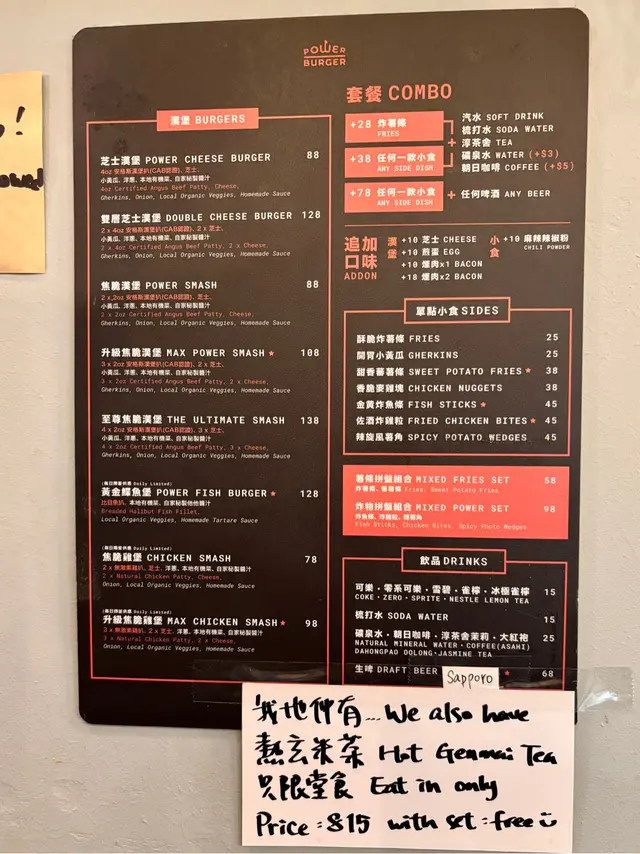 !
POWER
BURGER
漢堡 BURGERS
芝士漢堡 POWER CHEESE BURGER 88
4oz 安格斯漢堡扒(CAB認證)、芝士、
小黃瓜、洋蔥、本地有機菜、自家秘製醬汁
4oz Certified Angus Beef Patty, Cheese,
Gherkins, Onion, Local Organic Veggies, Homemade Sauce
雙層芝士漢堡 DOUBLE CHEESE BURGER 128
2 x 4oz 安格斯漢堡扒(CAB認證)、2 x 芝士、
小黃瓜、洋蔥、本地有機菜、自家秘製醬汁
2 x 4oz Certified Angus Beef Patty, 2 x Cheese,
Gherkins, Onion, Local Organic Veggies, Homemade Sauce
焦脆漢堡 POWER SMASH 88
2 x 2oz 安格斯漢堡扒(CAB認證)、芝士、
小黃瓜、洋蔥、本地有機菜、自家秘製醬汁
2 x 2oz Certified Angus Beef Patty, Cheese,
Gherkins, Onion, Local Organic Veggies, Homemade Sauce
升級焦脆漢堡 MAX POWER SMASH ★ 108
3 x 2oz 安格斯漢堡扒(CAB認證)、2 x 芝士、
小黃瓜、洋蔥、本地有機菜、自家秘製醬汁
3 x 2oz Certified Angus Beef Patty, 2 x Cheese,
Gherkins, Onion, Local Organic Veggies, Homemade Sauce
至尊焦脆漢堡 THE ULTIMATE SMASH 138
4 x 2oz 安格斯漢堡扒(CAB認證)、3 x 芝士、
小黃瓜、洋蔥、本地有機菜、自家秘製醬汁
4 x 2oz Certified Angus Beef Patty, 3 x Cheese,
Gherkins, Onion, Local Organic Veggies, Homemade Sauce
(每日限量供應 Daily Limited)
黃金鰈魚堡 POWER FISH BURGER ★ 128
比目魚扒、本地有機菜、自家秘製他他醬汁
Breaded Halibut Fish Fillet,
Local Organic Veggies, Homemade Tartare Sauce
(每日限量供應 Daily Limited)
焦脆雞堡 CHICKEN SMASH 78
2 x 無激素雞扒、芝士、洋蔥、本地有機菜、自家秘製醬汁
2 x Natural Chicken Patty, Cheese,
Onion, Local Organic Veggies, Homemade Sauce
(每日限量供應 Daily Limited)
升級焦脆雞堡 MAX CHICKEN SMASH ★ 98
3 x 無激素雞扒、2 x 芝士、洋蔥、本地有機菜、自家秘製醬汁
3 x Natural Chicken Patty, 2 x Cheese,
Onion, Local Organic Veggies, Homemade Sauce
套餐 COMBO
+28 炸薯條
FRIES
+38 任何一款小食
ANY SIDE DISH
汽水 SOFT DRINK
梳打水 SODA WATER
+ 淳茶舍 TEA
礦泉水 WATER (+$3)
朝日咖啡 COFFEE (+$5)
+78 任何一款小食
ANY SIDE DISH
+ 任何啤酒 ANY BEER
追加
口味
ADDON
漢堡
+10 芝士 CHEESE
+10 煎蛋 EGG
+10 煙肉x1 BACON
+18 煙肉x2 BACON
小食
+10 麻辣辣椒粉
CHILI POWDER
單點小食 SIDES
酥脆炸薯條 FRIES 25
開胃小黃瓜 GHERKINS 25
甜香蕃薯條 SWEET POTATO FRIES ★ 38
香脆麥雞塊 CHICKEN NUGGETS 38
金黃炸魚條 FISH STICKS ★ 45
佐酒炸雞粒 FRIED CHICKEN BITES ★ 45
辣旋風薯角 SPICY POTATO WEDGES 45
薯條拼盤組合 MIXED FRIES SET 58
炸薯條、蕃薯條 Fries, Sweet Potato Fries
炸物拼盤組合 MIXED POWER SET 98
炸魚條、炸雞粒、辣薯角
Fish Sticks, Chicken Bites, Spicy Photo Wedges
飲品 DRINKS
可樂・零系可樂・雪碧・雀檸・冰極雀檸 15
COKE・ZERO・SPRITE・NESTLE LEMON TEA
梳打水 SODA WATER 15
礦泉水・朝日咖啡・淳茶舍茉莉・大紅袍 25
NATURAL MINERAL WATER・COFFEE(ASAHI)
DAHONGPAO OOLONG・JASMINE TEA
生啤 DRAFT BEER Sapporo ★ 68
我地仲有...We also have
熱玄米茶 Hot Genmai Tea
只限堂食 Eat in only
Price : $15 with set : free